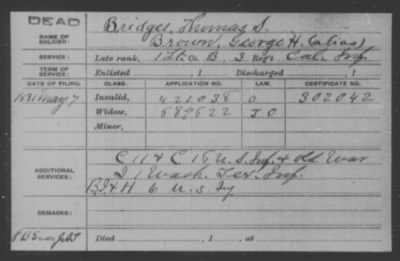 DEAD
NAME OF SOLDIER: Bridges, Thomas S.
Brown, George H. (alias)
SERVICE: Late rank, 1 Lt. Co. B, 3 Reg't Cal. Inf.
TERM OF SERVICE: Enlisted , 1 Discharged , 1
DATE OF FILING. CLASS. APPLICATION NO. LAW. CERTIFICATE NO.
7 Invalid, 421038 O 302042
Widow, 589522 J O
Minor,
ADDITIONAL SERVICES: C 11 & C 15 U.S. Inf. & Old War
D 1 Wash. Ter. Inf.
B, I & H 6 U.S. Iy
REMARKS:
Died , 1 , at